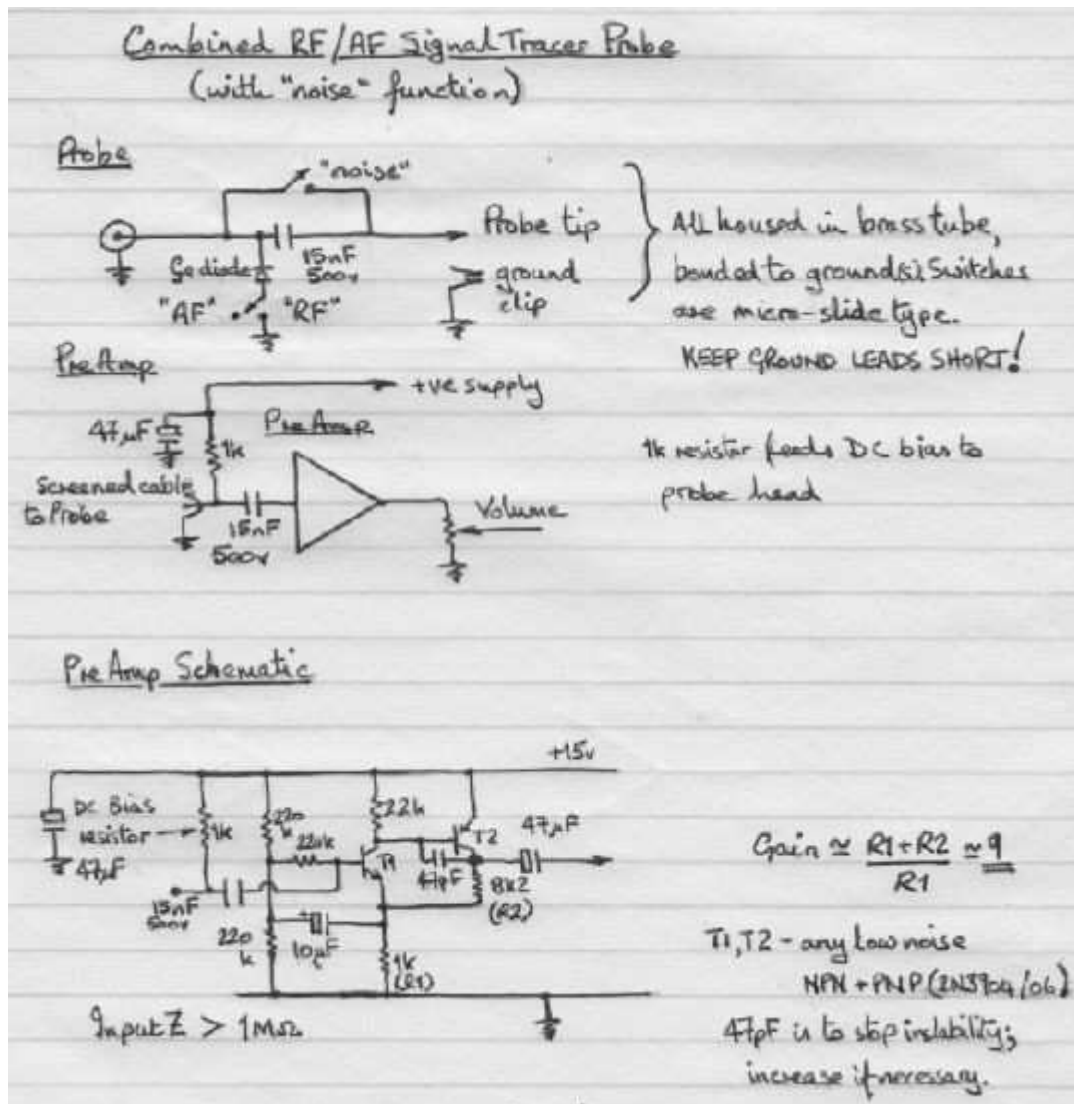 Combined RF/AF Signal Tracer Probe
(with "noise" function)
Probe
"noise"
15nF
500v
Probe tip
Ge diode
"AF"
"RF"
ground
clip
All housed in brass tube,
bonded to ground(s). Switches
are micro-slide type.
KEEP GROUND LEADS SHORT!
Pre Amp
+ve supply
47µF
1k
Pre Amp
Screened cable
to Probe
15nF
500v
Volume
1k resistor feeds DC bias to
probe head
Pre Amp Schematic
+15v
DC Bias
resistor
47µF
1k
220
k
220k
22k
T1
T2
47pF
47µF
8k2
(R2)
15nF
500v
220
k
10µF
1k
(R1)
Input Z > 1MΩ
Gain ≃ R1+R2 ≃ 9
R1
T1,T2 - any low noise
NPN + PNP (2N3904/06)
47pF is to stop instability;
increase if necessary.